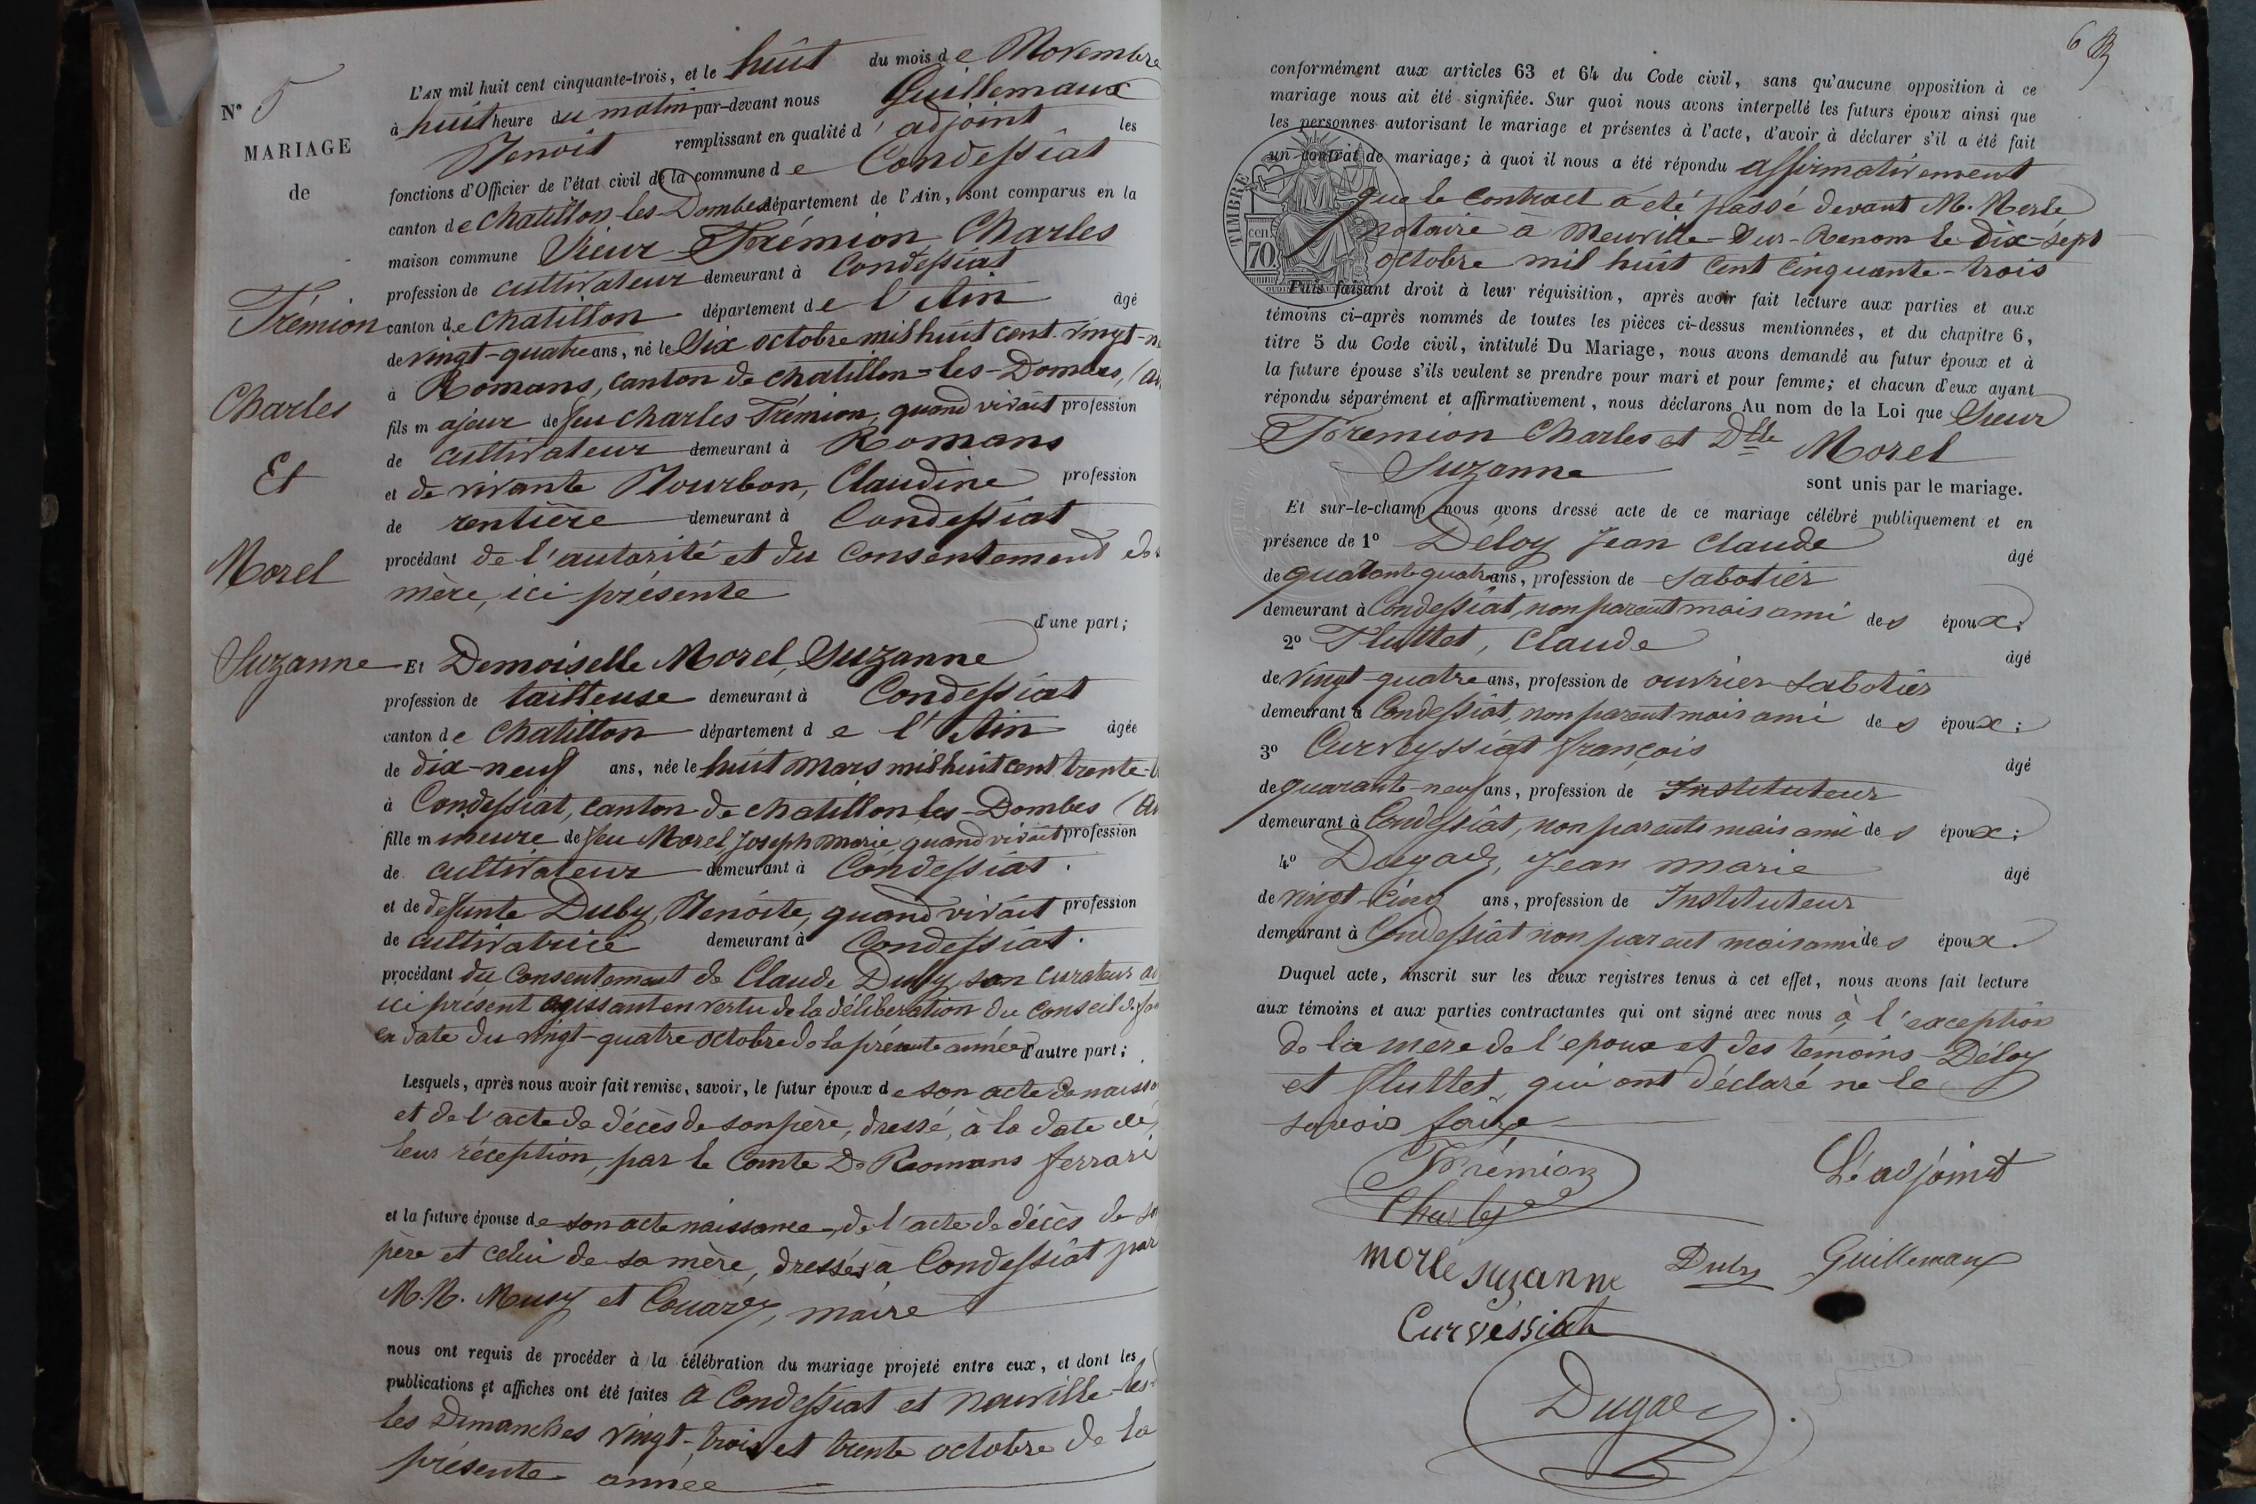 N° 5
MARIAGE
de
Trémion
Charles
Et
Morel
Suzanne
L'AN mil huit cent cinquante-trois, et le huit du mois de Novembre
à huit heure du matin par-devant nous Guillemaux
Benoit remplissant en qualité d'adjoint les
fonctions d'Officier de l'état civil de la commune de Condessiat
canton de Chatillon-les-Dombes département de l'Ain, sont comparus en la
maison commune Sieur Trémion Charles
profession de cultivateur demeurant à Condessiat
canton de Chatillon département de l'Ain âgé
de vingt-quatre ans, né le Six octobre mil huit cent vingt-n
à Romans, canton de chatillon-les-Dombes, (Ain
fils majeur de feu Charles Trémion, quand vivait profession
de cultivateur demeurant à Romans
et de vivante Bourbon, Claudine profession
de rentière demeurant à Condessiat
procédant de l'autorité et du consentement de s
mère, ici présente
d'une part;
Et Demoiselle Morel, Suzanne
profession de tailleuse demeurant à Condessiat
canton de Chatillon département de l'Ain âgée
de dix-neuf ans, née le huit Mars mil huit cent trente-
à Condessiat, canton de chatillon les-Dombes (Ain
fille mineure de feu Morel, Joseph marie, quand vivait profession
de cultivateur demeurant à Condessiat.
et de defunte Duby, Benoite, quand vivait profession
de cultivatrice demeurant à Condessiat.
procédant du Consentement de Claude Duby, son curateur
ici présent agissant en vertu de la délibération du Conseil de fa
en date du vingt-quatre octobre de la présente année d'autre part;
Lesquels, après nous avoir fait remise, savoir, le futur époux de son acte de naissa
et de l'acte de décès de son père, dressé, à la date de
leur réception, par le Comte De Romans ferrari
et la future épouse de son acte naissance, de l'acte de décès de so
père et celui de sa mère, dressés à Condessiat par
M.M. Musy et Couardy, maire
nous ont requis de procéder à la célébration du mariage projeté entre eux, et dont les
publications et affiches ont été faites à Condessiat et neuville-les-
les Dimanches vingt-trois et trente octobre de la
présente année
6
conformément aux articles 63 et 64 du Code civil, sans qu'aucune opposition à ce
mariage nous ait été signifiée. Sur quoi nous avons interpellé les futurs époux ainsi que
les personnes autorisant le mariage et présentes à l'acte, d'avoir à déclarer s'il a été fait
un contrat de mariage; à quoi il nous a été répondu affirmativement
que le contract a été passé devant M. Merle
notaire à Neuville-Sur-Renom le dix-sept
octobre mil huit cent cinquante-trois
TIMBRE
cen.
70
Puis faisant droit à leur réquisition, après avoir fait lecture aux parties et aux
témoins ci-après nommés de toutes les pièces ci-dessus mentionnées, et du chapitre 6,
titre 5 du Code civil, intitulé Du Mariage, nous avons demandé au futur époux et à
la future épouse s'ils veulent se prendre pour mari et pour femme; et chacun d'eux ayant
répondu séparément et affirmativement, nous déclarons Au nom de la Loi que Sieur
Trémion Charles et Dlle Morel
Suzanne
sont unis par le mariage.
Et sur-le-champ nous avons dressé acte de ce mariage célébré publiquement et en
présence de 1° Déloy Jean Claude âgé
de quatante quatre ans, profession de sabotier
demeurant à Condessiat, non parent mais ami des époux;
2° Fluttet, Claude âgé
de vingt-quatre ans, profession de ouvrier sabotier
demeurant à Condessiat, non parent mais ami des époux;
3° Curveyssiat françois âgé
de quarante-neuf ans, profession de Instituteur
demeurant à Condessiat, non parents mais ami des époux;
4° Dugaey, Jean marie âgé
de vingt-cinq ans, profession de Instituteur
demeurant à Condessiat non parent mais ami des époux.
Duquel acte, inscrit sur les deux registres tenus à cet effet, nous avons fait lecture
aux témoins et aux parties contractantes qui ont signé avec nous à l'exception
de la mère de l'epoux et des temoins Déloy
et fluttet, qui ont déclaré ne le
savoir faire
Trémion
Charles
L'adjoint
morle suzanne Duby Guillemaux
Curvéssiat
Dugaey